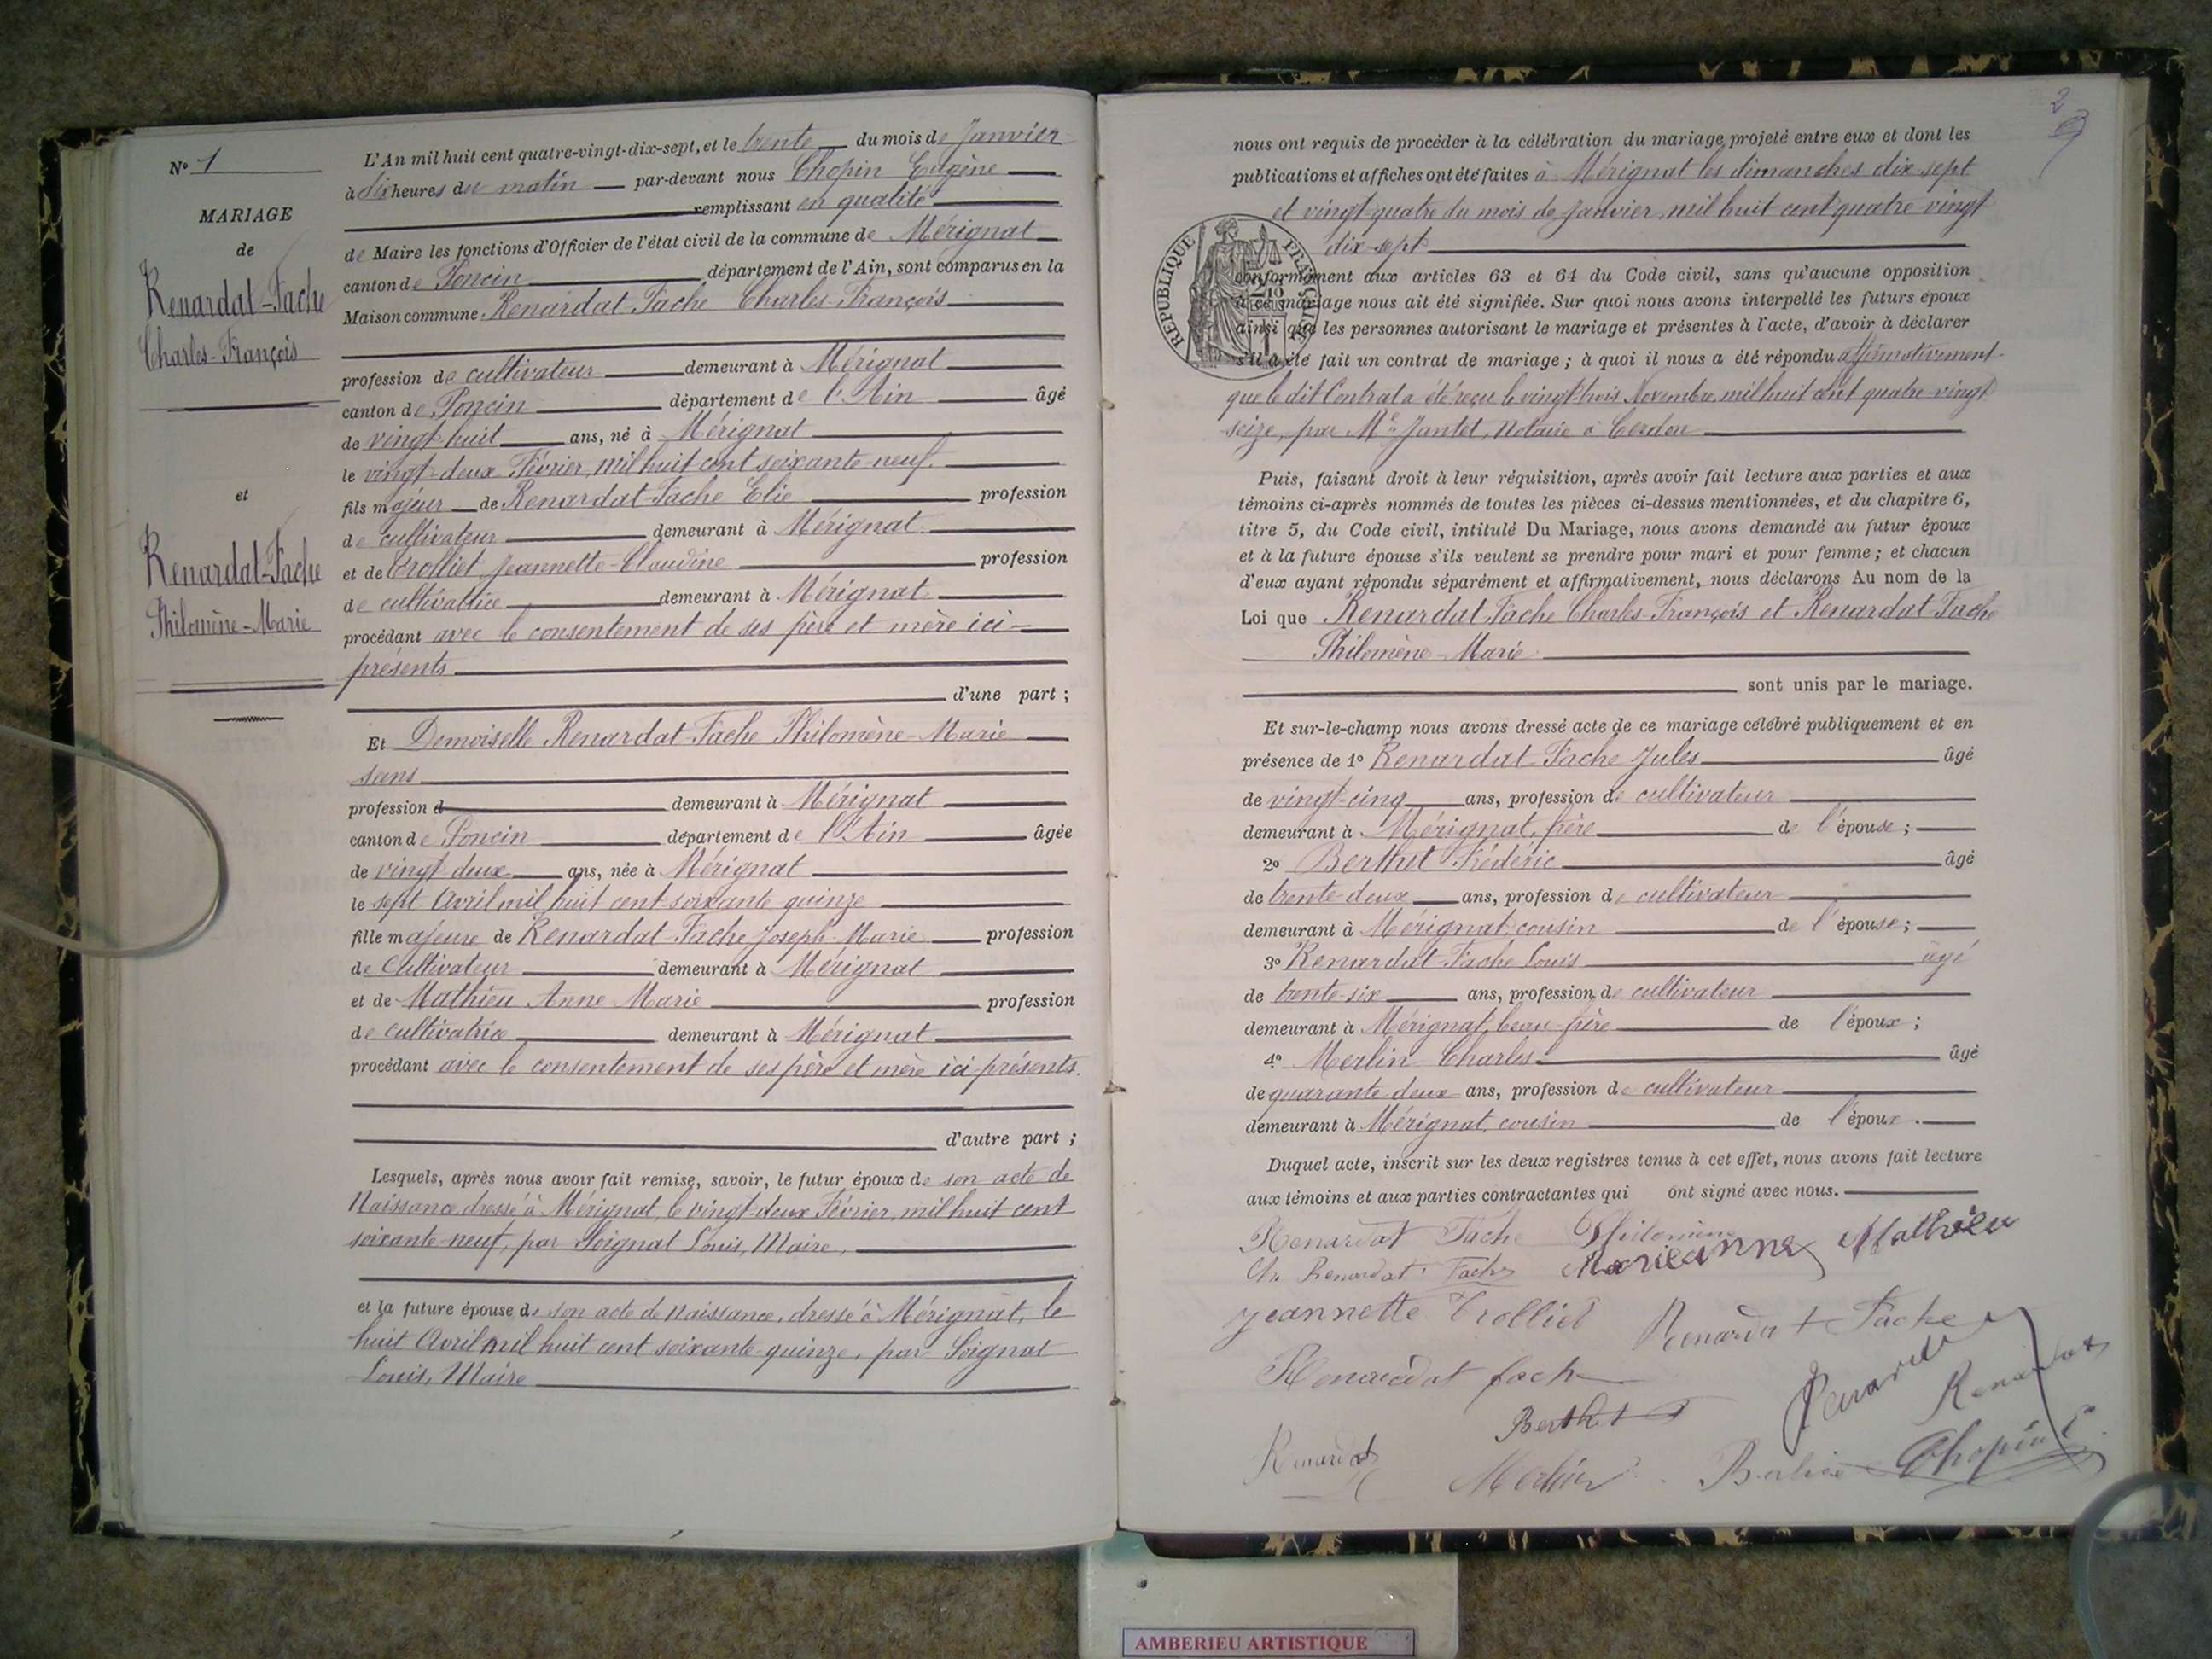 N° 1
MARIAGE
de
Renardat-Fache
Charles-François
et
Renardat-Fache
Philomène-Marie
L'An mil huit cent quatre-vingt-dix-sept, et le trente du mois de Janvier
à dix heures du matin par-devant nous Chopin Eugène
remplissant en qualité
de Maire les fonctions d'Officier de l'état civil de la commune de Mérignat
canton de Poncin département de l'Ain, sont comparus en la
Maison commune Renardat-Fache Charles-François
profession de cultivateur demeurant à Mérignat
canton de Poncin département de l'Ain âgé
de vingt-huit ans, né à Mérignat
le vingt-deux Février, mil huit cent soixante-neuf.
fils majeur de Renardat-Fache Elie profession
de cultivateur demeurant à Mérignat.
et de Trolliet Jeannette-Claudine profession
de cultivatrice demeurant à Mérignat.
procédant avec le consentement de ses père et mère ici-
présents
d'une part ;
Et Demoiselle Renardat-Fache Philomène-Marie
sans
profession d demeurant à Mérignat
canton de Poncin département de l'Ain âgée
de vingt deux ans, née à Mérignat
le sept Avril mil huit cent soixante quinze
fille majeure de Renardat-Fache Joseph-Marie profession
de Cultivateur demeurant à Mérignat
et de Mathieu Anne-Marie profession
de cultivatrice demeurant à Mérignat
procédant avec le consentement de ses père et mère ici présents.
d'autre part ;
Lesquels, après nous avoir fait remise, savoir, le futur époux de son acte de
Naissance dressé à Mérignat, le vingt-deux Février, mil huit cent
soixante-neuf, par Soignat Louis, Maire,
et la future épouse de son acte de naissance, dressé à Mérignat, le
huit Avril mil huit cent soixante-quinze, par Soignat
Louis, Maire
2
nous ont requis de procéder à la célébration du mariage projeté entre eux et dont les
publications et affiches ont été faites à Mérignat les dimanches dix-sept
et vingt-quatre du mois de Janvier, mil huit cent quatre vingt
dix-sept
RÉPUBLIQUE FRANÇAISE
conformément aux articles 63 et 64 du Code civil, sans qu'aucune opposition
à ce mariage nous ait été signifiée. Sur quoi nous avons interpellé les futurs époux
ainsi que les personnes autorisant le mariage et présentes à l'acte, d'avoir à déclarer
s'il a été fait un contrat de mariage ; à quoi il nous a été répondu affirmativement
que le dit Contrat a été reçu le vingt-trois Novembre, mil huit cent quatre-vingt
seize, par Me Jantet, Notaire à Cerdon
Puis, faisant droit à leur réquisition, après avoir fait lecture aux parties et aux
témoins ci-après nommés de toutes les pièces ci-dessus mentionnées, et du chapitre 6,
titre 5, du Code civil, intitulé Du Mariage, nous avons demandé au futur époux
et à la future épouse s'ils veulent se prendre pour mari et pour femme ; et chacun
d'eux ayant répondu séparément et affirmativement, nous déclarons Au nom de la
Loi que Renardat-Fache Charles-François et Renardat-Fache
Philomène-Marie
sont unis par le mariage.
Et sur-le-champ nous avons dressé acte de ce mariage célébré publiquement et en
présence de 1° Renardat-Fache Jules âgé
de vingt-cinq ans, profession de cultivateur
demeurant à Mérignat, frère de l'épouse ;
2° Berthet Frédéric âgé
de trente-deux ans, profession de cultivateur
demeurant à Mérignat, cousin de l'épouse ;
3° Renardat-Fache Louis âgé
de trente-six ans, profession de cultivateur
demeurant à Mérignat, beau-frère de l'époux ;
4° Merlin Charles âgé
de quarante deux ans, profession de cultivateur
demeurant à Mérignat, cousin de l'époux.
Duquel acte, inscrit sur les deux registres tenus à cet effet, nous avons fait lecture
aux témoins et aux parties contractantes qui ont signé avec nous.
Renardat Fache Philomène
Ch. Renardat-Fache Marieanne Mathieu
Jeannette Trolliet Renardat Fache
Renardat fache
Berthet F Renardat
Renardat Merlin Chopin E.
AMBERIEU ARTISTIQUE